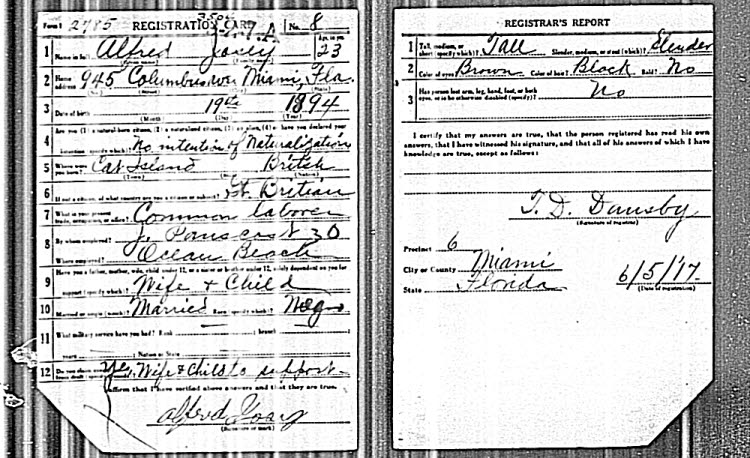 Form 1 2785 REGISTRATION CARD No. 8
1 Name in full Alfred Age, in yrs. 23
2 Home address 945 Columbus Miami, Fla.
3 Date of birth 19th 1894
(Month) (Day) (Year)
4 Are you (1) a natural-born citizen, (2) a naturalized citizen, (3) an alien, (4) or have you declared your
intention (specify which)? No intention of Naturalization
5 Where were you born? Cat Island British
(Town) (State) (Nation)
6 If not a citizen, of what country are you a citizen or subject? Gt. Britian
7 What is your present trade, occupation, or office? Common laborer
8 By whom employed? J.
Where employed? Ocean Beach
9 Have you a father, mother, wife, child under 12, or a sister or brother under 12, solely dependent on you for
support (specify which)? Wife & Child
10 Married or single (which)? Married Race (specify which)? Negro
11 What military service have you had? Rank ; branch ;
years ; Nation or State
12 Do you claim exemption from draft (specify grounds)? Yes, Wife & Child to support
I affirm that I have verified above answers and that they are true.
Alfred
(Signature or mark)
REGISTRAR'S REPORT
1 Tall, medium, or short (specify which)? Tall Slender, medium, or stout (which)? Slender
2 Color of eyes? Brown Color of hair? Black Bald? No
3 Has person lost arm, leg, hand, foot, or both
eyes, or is he otherwise disabled (specify)? No
I certify that my answers are true, that the person registered has read his own
answers, that I have witnessed his signature, and that all of his answers of which I have
knowledge are true, except as follows:
T. D. Dansby
(Signature of registrar)
Precinct 6
City or County Miami
State Florida 6/5/17.
(Date of registration)